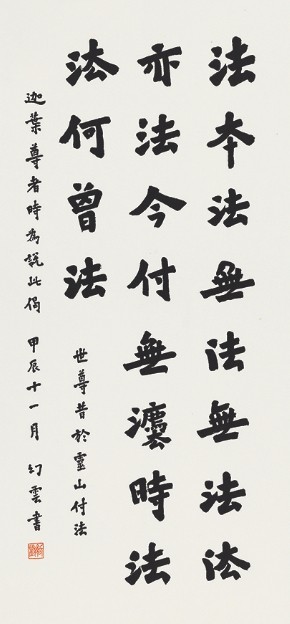 法本法無法無法法
亦法今付無灋時法
法何曾法
世尊昔於靈山付法
迦葉尊者時為說此偈 甲辰十一月 幻雲書